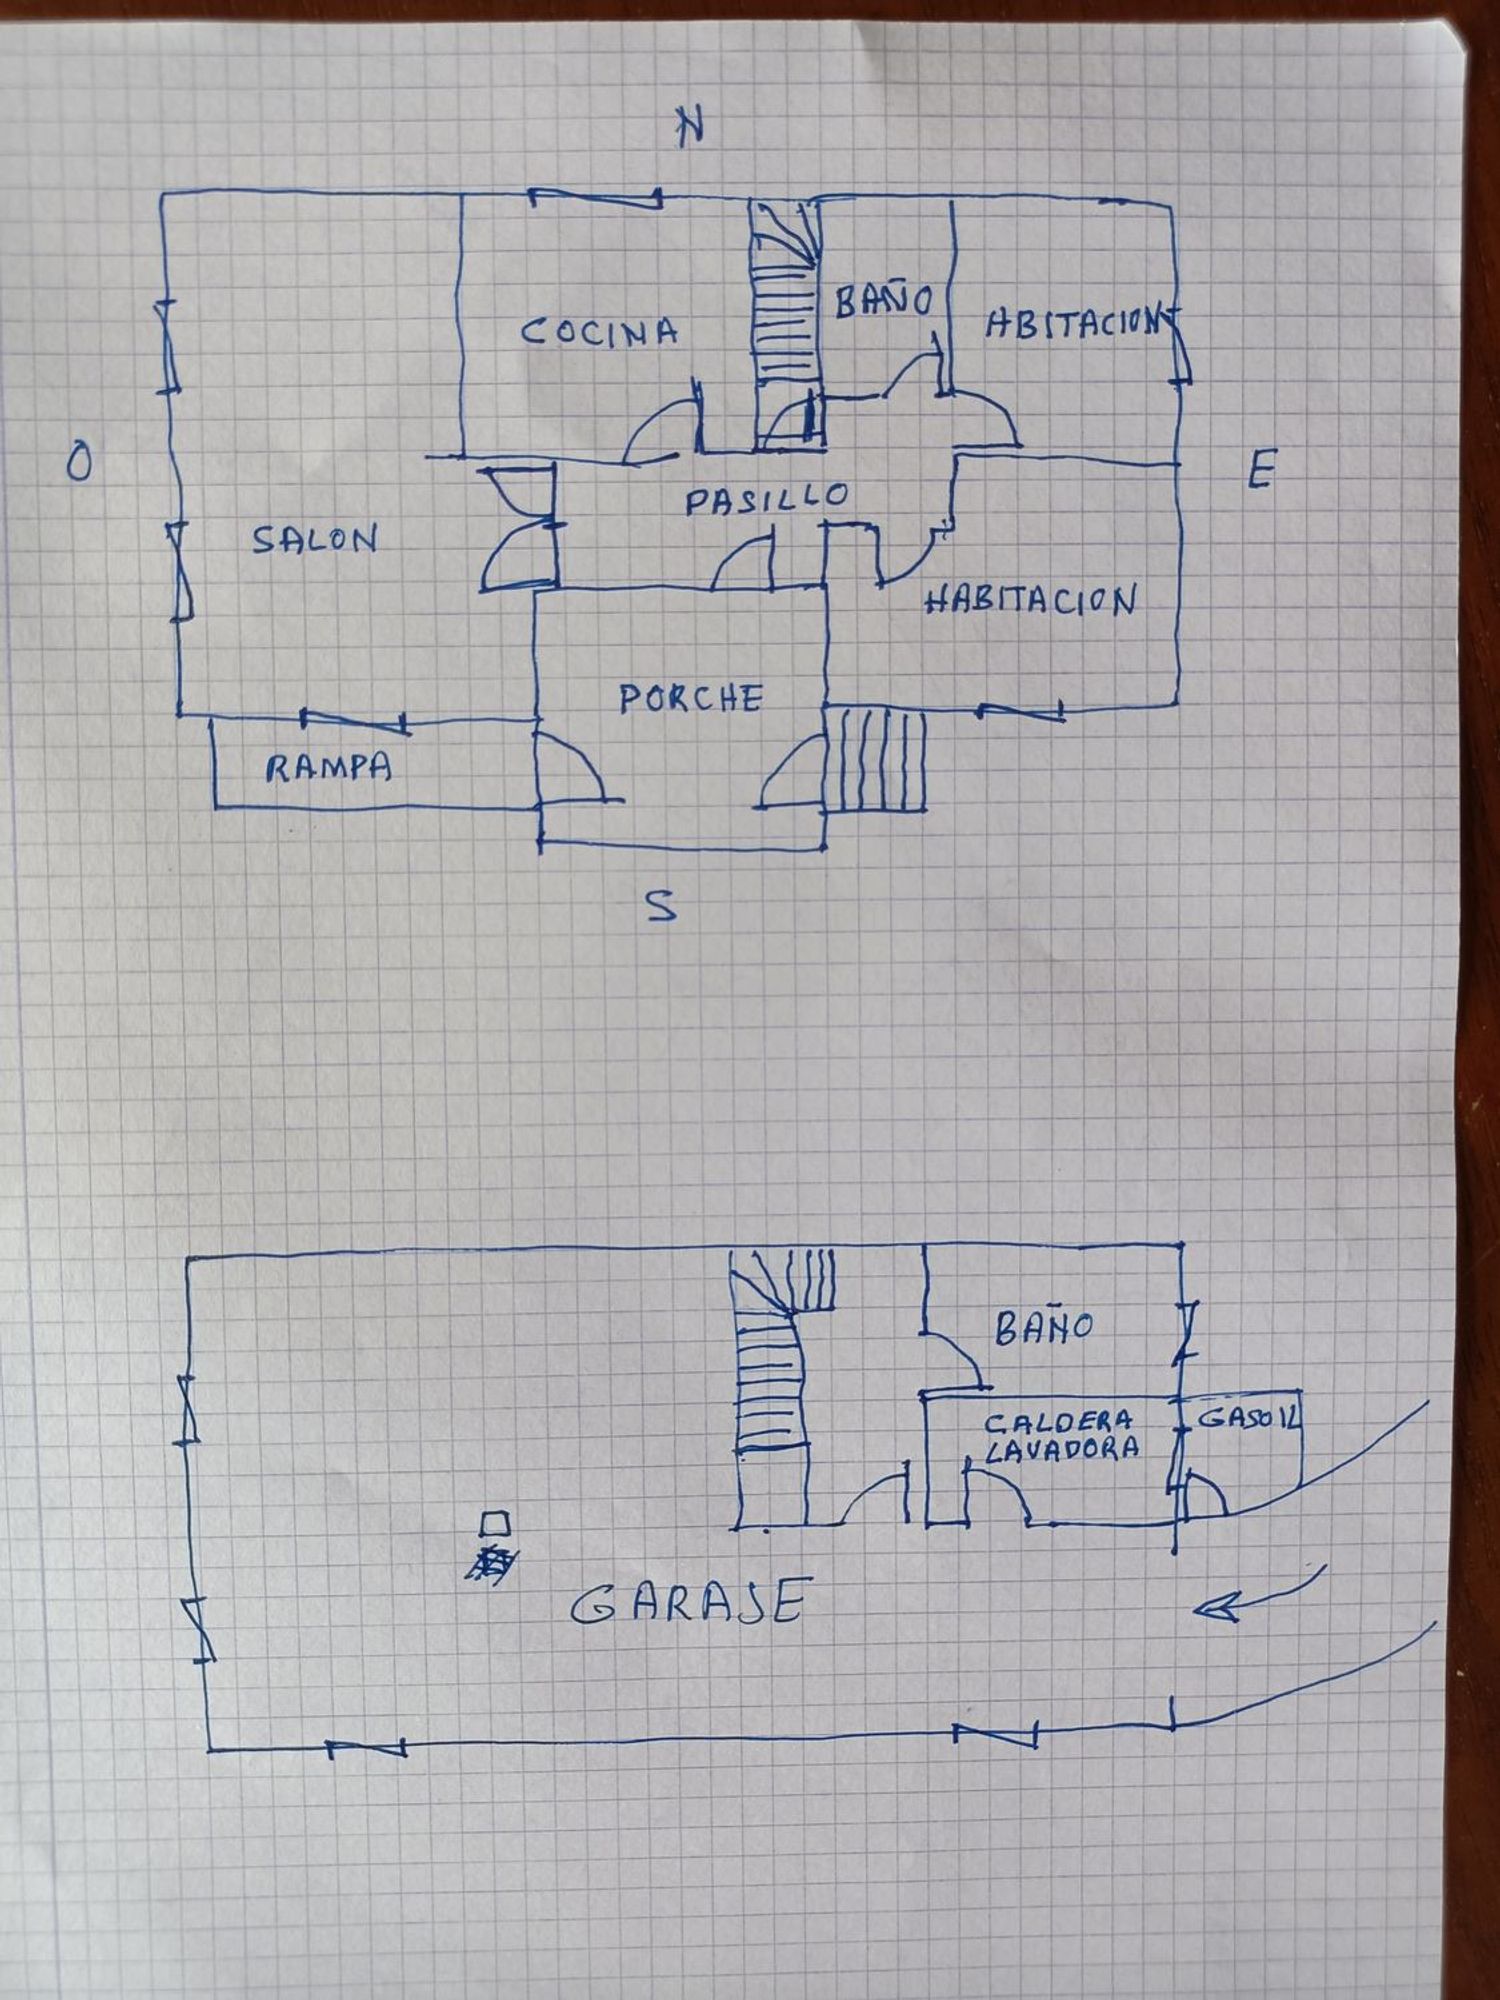 N
BAÑO
ABITACION
COCINA
O
E
PASILLO
SALON
HABITACION
PORCHE
RAMPA
S
BAÑO
CALDERA
LAVADORA
GASOIL
GARAJE